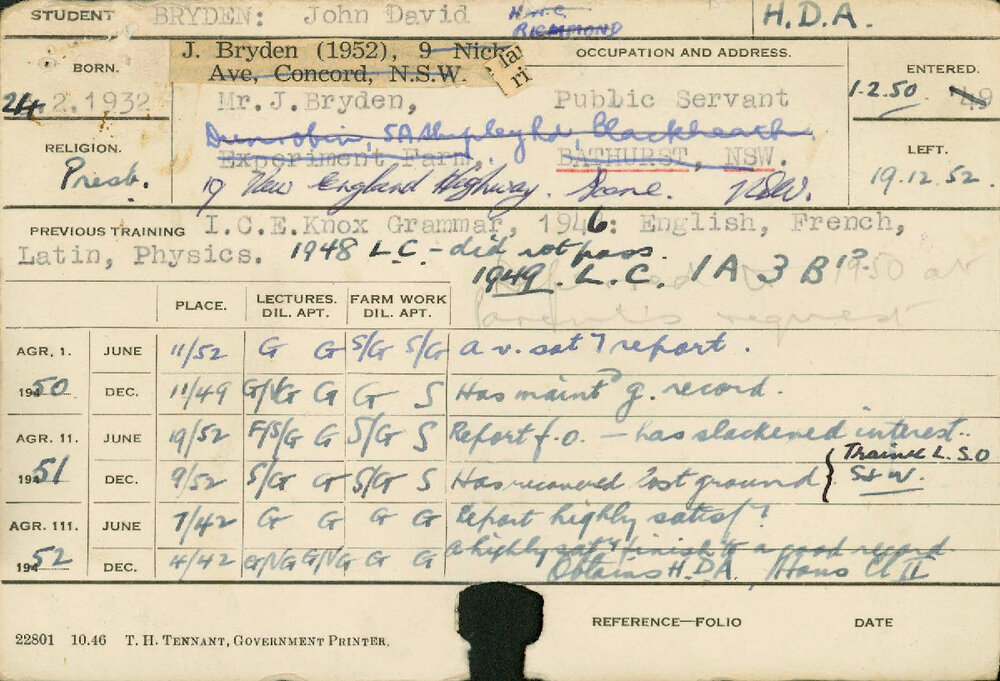 STUDENT BRYDEN: John David H.A.C. RICHMOND H.D.A.
J. Bryden (1952), 9 Nick
Ave, Concord, N.S.W.
ri
OCCUPATION AND ADDRESS.
BORN.
24.2.1932
ENTERED.
1.2.50. 49
Mr. J. Bryden, Public Servant
Dunrobin, 5A Blackheath.
Experiment Farm, BATHURST, NSW.
RELIGION.
Presb.
LEFT.
19.12.52.
19 New England Highway. Scone. NSW.
PREVIOUS TRAINING I.C.E. Knox Grammar, 1946: English, French,
Latin, Physics. 1948 L.C. - did not pass.
1949. L.C. 1A 3 B's.
1950 at
parent's request
PLACE. LECTURES. DIL. APT. FARM WORK DIL. APT.
AGR. 1. JUNE 11/52 G G S/G S/G A v. sat y report.
1950 DEC. 11/49 G/VG G G S Has maint d g. record.
AGR. 11. JUNE 19/52 F/S/G G S/G S Report f.o. - has slackened interest..
1951 DEC. 9/52 S/G G S/G S Has recovered lost ground } Trainee L.S.O S & W.
AGR. 111. JUNE 7/42 G G G G Report highly satisf y
1952 DEC. 4/42 G/VG G/VG G G A highly sat y finish to a good record.
Obtains H.D.A. Hons Cl II
REFERENCE—FOLIO DATE
22801 10.46 T. H. TENNANT, GOVERNMENT PRINTER.